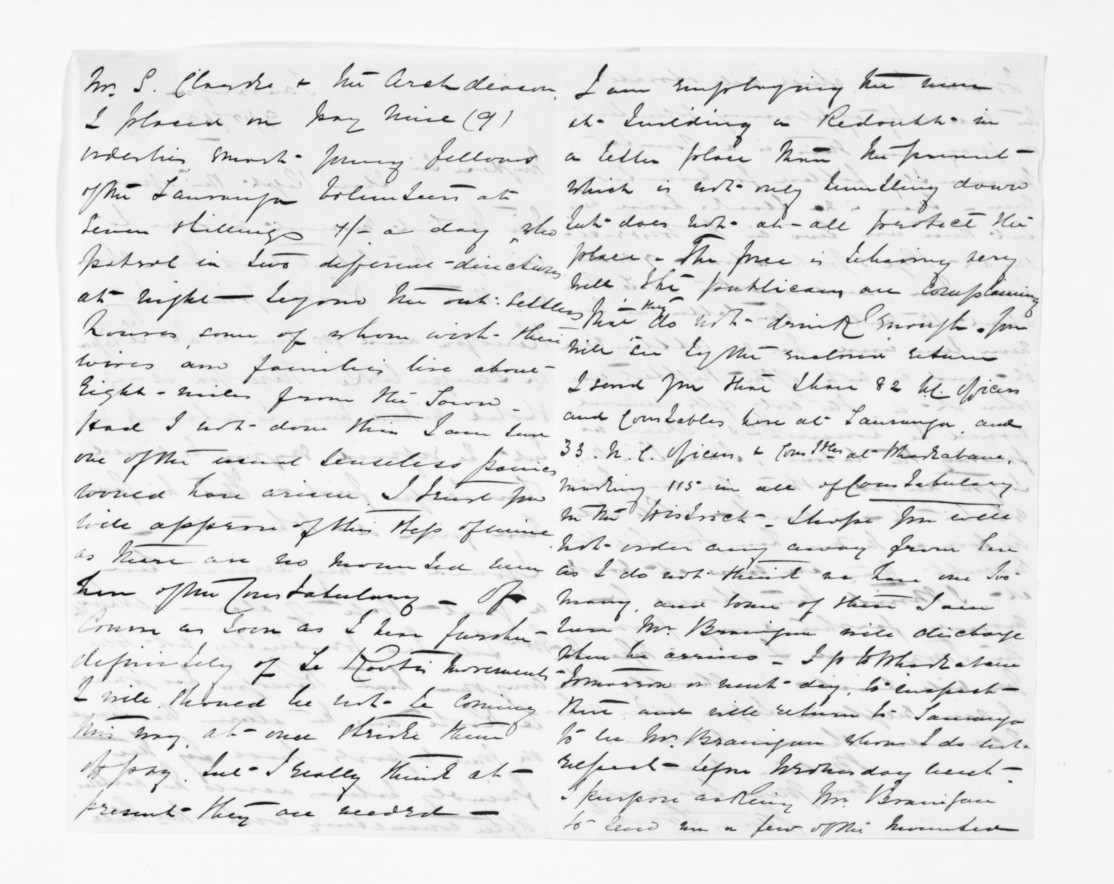 Mr. S. Clarke & the Archdeacon.
I placed on pay nine (9)
orderlies smart young fellows
of the Tauranga Volunteers at
Seven Shillings 7/- a day, who
patrol in two different directions
at night - beyond the out-settlers
houses some of whom with their
wives and families live about
Eight-miles from the Town -
Had I not done this I am sure
one of the usual senseless panics
would have arisen. I trust you
will approve of this step of mine
as there are no mounted men
here of the Constabulary - Of
Course as soon as I hear further
definitely of Te Kooti's movements
I will, should he not be coming
this way, at once strike them
off pay. but I really think at
present they are needed -
I am employing the men
at building a Redoubt in
a better place than the present
which is not only tumbling down
but does not at all protect the
place - The force is behaving very
well the publicans are complaining
that they do not drink enough. You
will see by the enclosed return
I send you that I have 82 N.C. Officers
and Constables here at Tauranga, and
33 N.C. Officers & Constbles at Whakatane,
making 115 in all of Constabulary
in the District - I hope you will
not order any away from here
as I do not think we have one too
many, and some of them I am
sure Mr. Branigan will discharge
when he arrives - I go to Whakatane
tomorrow or next day, to inspect
there and will return to Tauranga
to see Mr. Branigan whom I do not
expect before Wednesday next -
I purpose asking Mr. Branigan
to send me a few of the mounted